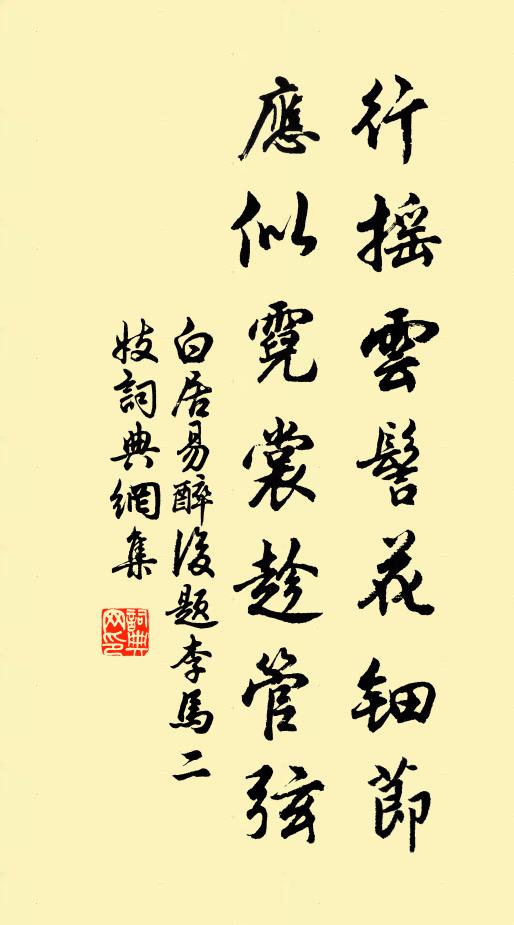 行摇雲髻花鈿節
應似霓裳趁管弦
白居易醉後題李馬二
妓詞典網集
詞典网印